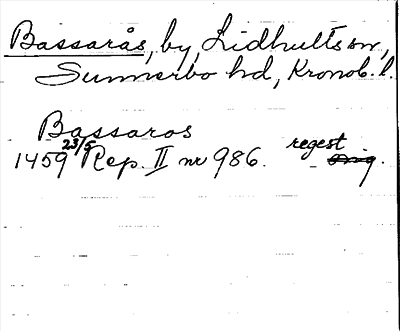 Bassarås, by, Lidhults sn,
Sunnerbo hd, Kronob. l.
Bassaros
1459 23/5 Rep. II nr 986. regest orig.